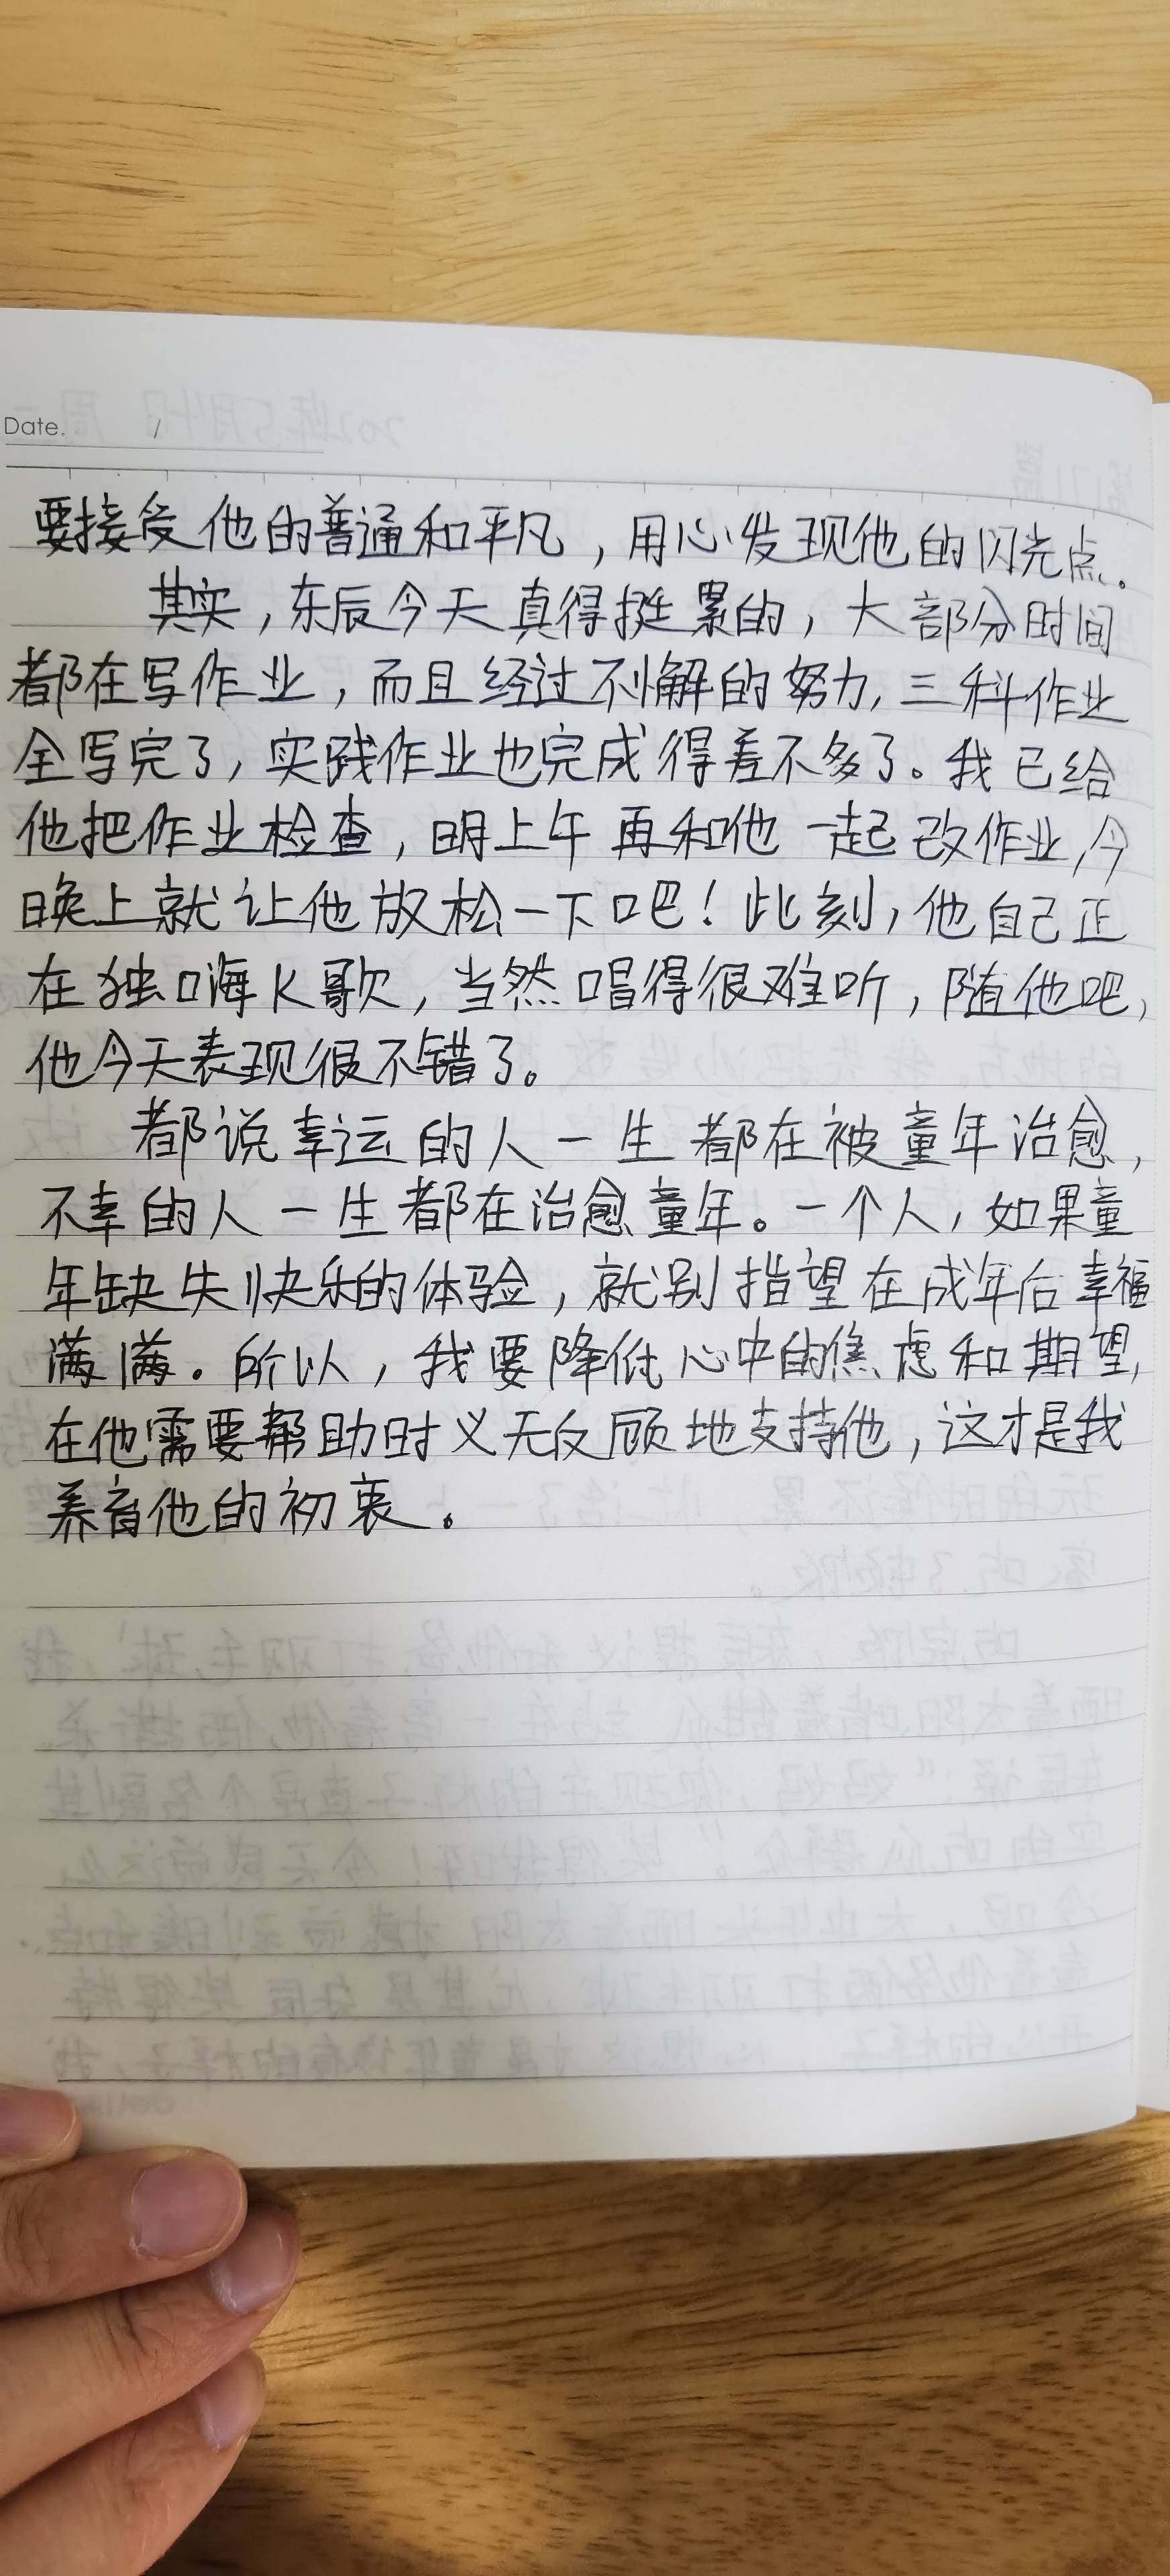 Date. /
要接受他的普通和平凡，用心发现他的闪光点。
其实，东辰今天真得挺累的，大部分时间
都在写作业，而且经过不懈的努力，三科作业
全写完了，实践作业也完成得差不多了。我已给
他把作业检查，明上午再和他一起改作业，今
晚上就让他放松一下吧！此刻，他自己正
在独嗨K歌，当然唱得很难听，随他吧，
他今天表现很不错了。
都说幸运的人一生都在被童年治愈，
不幸的人一生都在治愈童年。一个人，如果童
年缺失快乐的体验，就别指望在成年后幸福
满满。所以，我要降低心中的焦虑和期望，
在他需要帮助时义无反顾地支持他，这才是我
养育他的初衷。